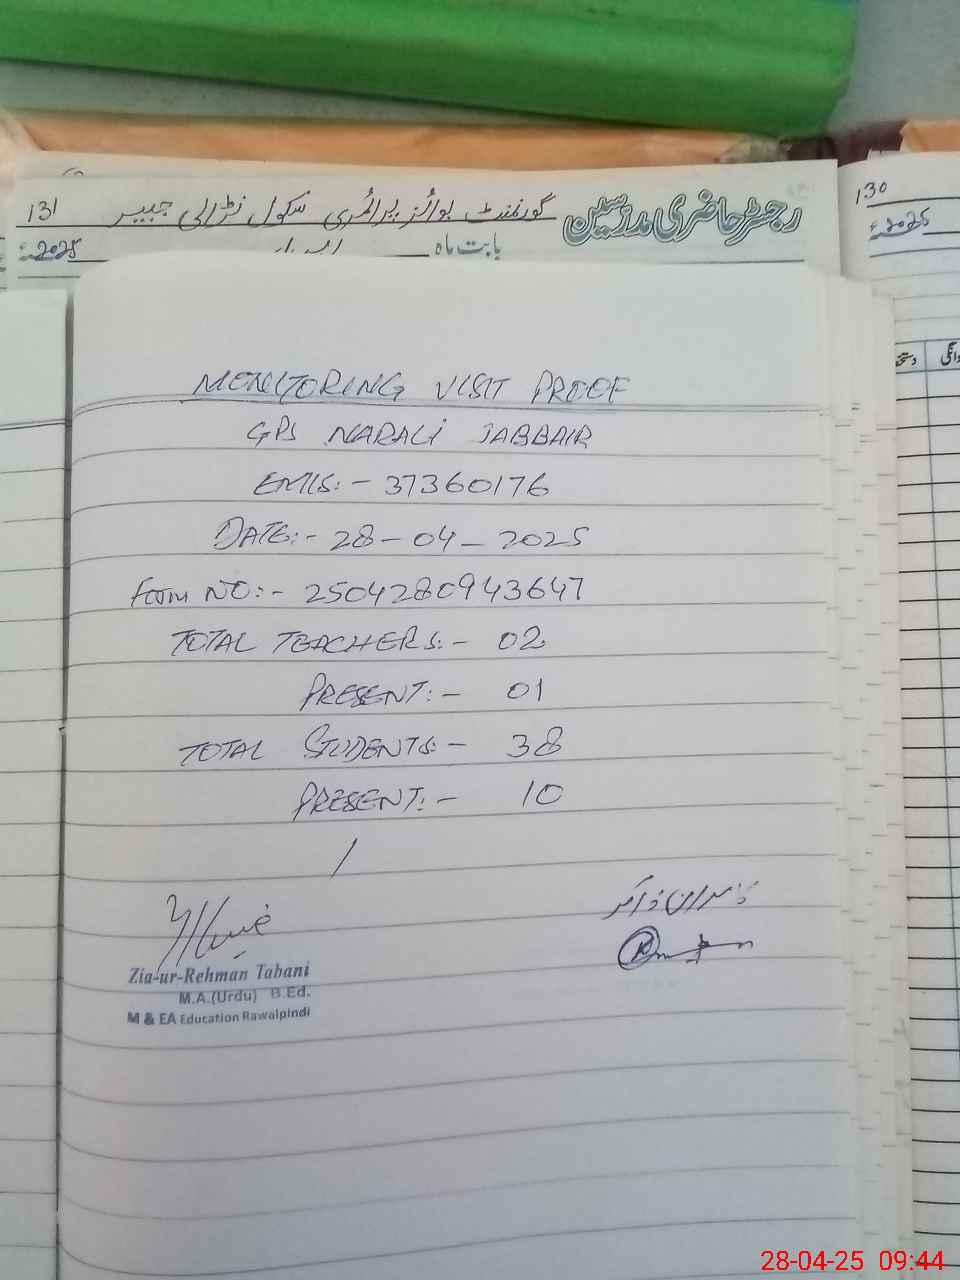 رجسٹر حاضری مدرسین گورنمنٹ بوائز پرائمری سکول نڑالی جبیر 131
بابت ماہ 2025ء
130
2025ء
MONITORING VISIT PROOF
GPS NARALI JABBAIR
EMIS:- 37360176
DATE:- 28-04-2025
Form NO:- 2504280943647
TOTAL TEACHERS:- 02
PRESENT:- 01
TOTAL STUDENTS:- 38
PRESENT:- 10
Zia-ur-Rehman Tabani
M.A.(Urdu) B.Ed.
M & EA Education Rawalpindi
28-04-25 09:44